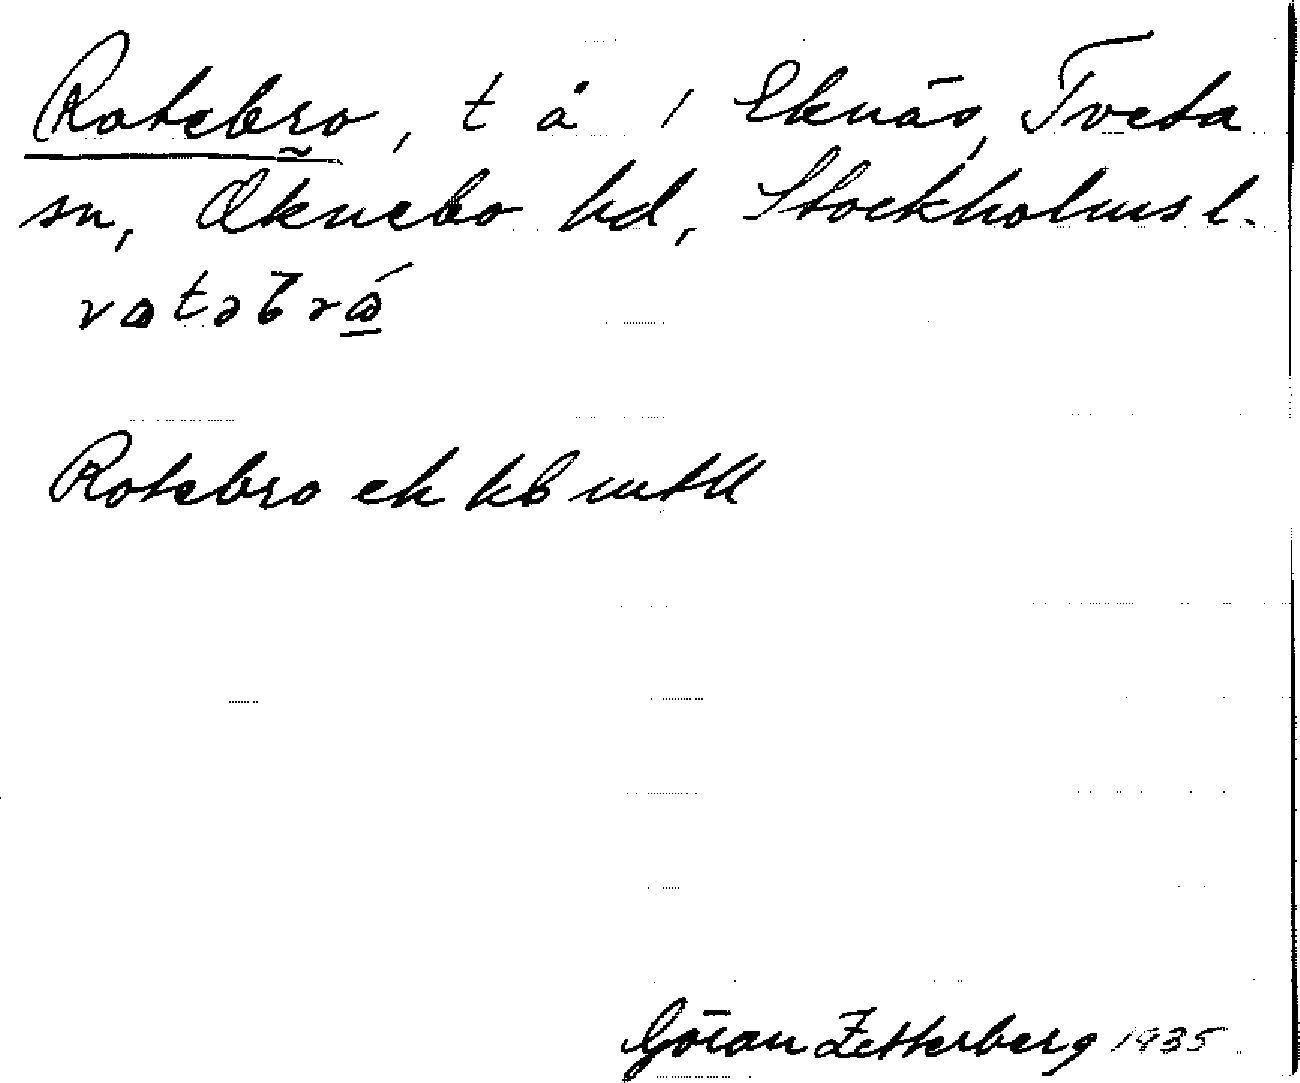 Rotebro, t å i Eknäs, Tveta
sn, Öknebo hd, Stockholms l.
rotəbrώ̲
Rotebro ek kb mtll
Göran Zetterberg 1935